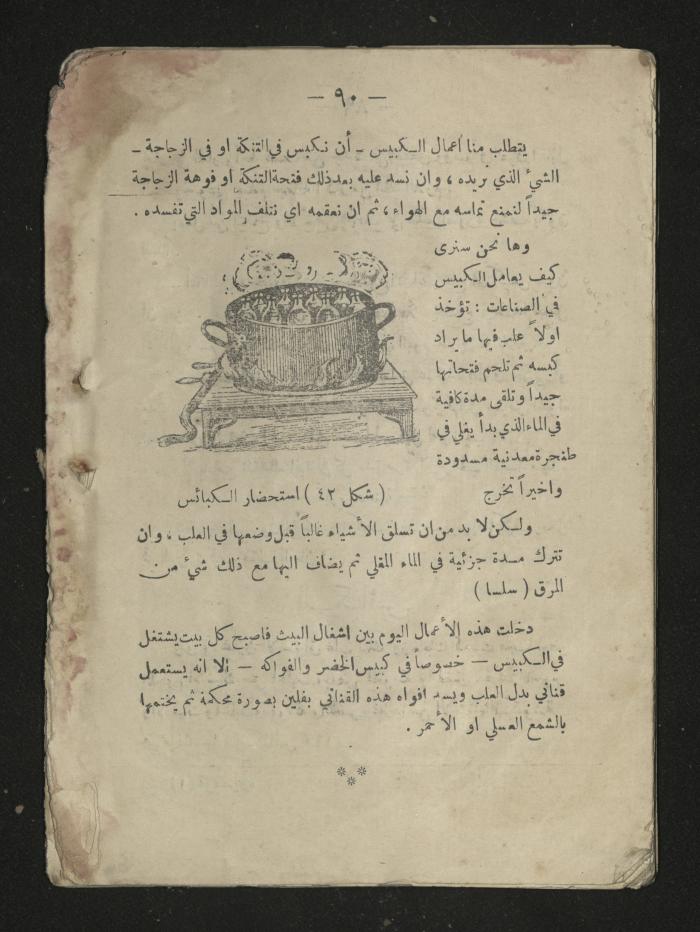 — ٩٠ —
يتطلب منا أعمال الكبيس - أن نكبس في التنكة او في الزجاجة -
الشيء الذي نريده ، وان نسد عليه بعد ذلك فتحة التنكة او فوهة الزجاجة
جيداً لنمنع تماسه مع الهواء ، ثم ان نعقمه اي نتلف المواد التي تفسده .
وها نحن سنرى
كيف يعامل الكبيس
في الصناعات : تؤخذ
اولاً علب فيها ما يراد
كبسه ثم تلحم فتحاتها
جيداً وتلقى مدة كافية
في الماء الذي بدأ يغلي في
طنجرة معدنية مسدودة
واخيراً تخرج
( شكل ٤٢ ) استحضار الكبائس
ولكن لا بد من ان تسلق الأشياء غالباً قبل وضعها في العلب ، وان
تترك مدة جزئية في الماء المغلي ثم يضاف اليها مع ذلك شيء من
المرق ( سلسا )
دخلت هذه الأعمال اليوم بين اشغال البيت فاصبح كل بيت يشتغل
في الكبيس — خصوصاً في كبيس الخضر والفواكه — الا انه يستعمل
قناني بدل العلب ويسد افواه هذه القناني بفلين بصورة محكمة ثم يختمها
بالشمع العسلي او الأحمر .